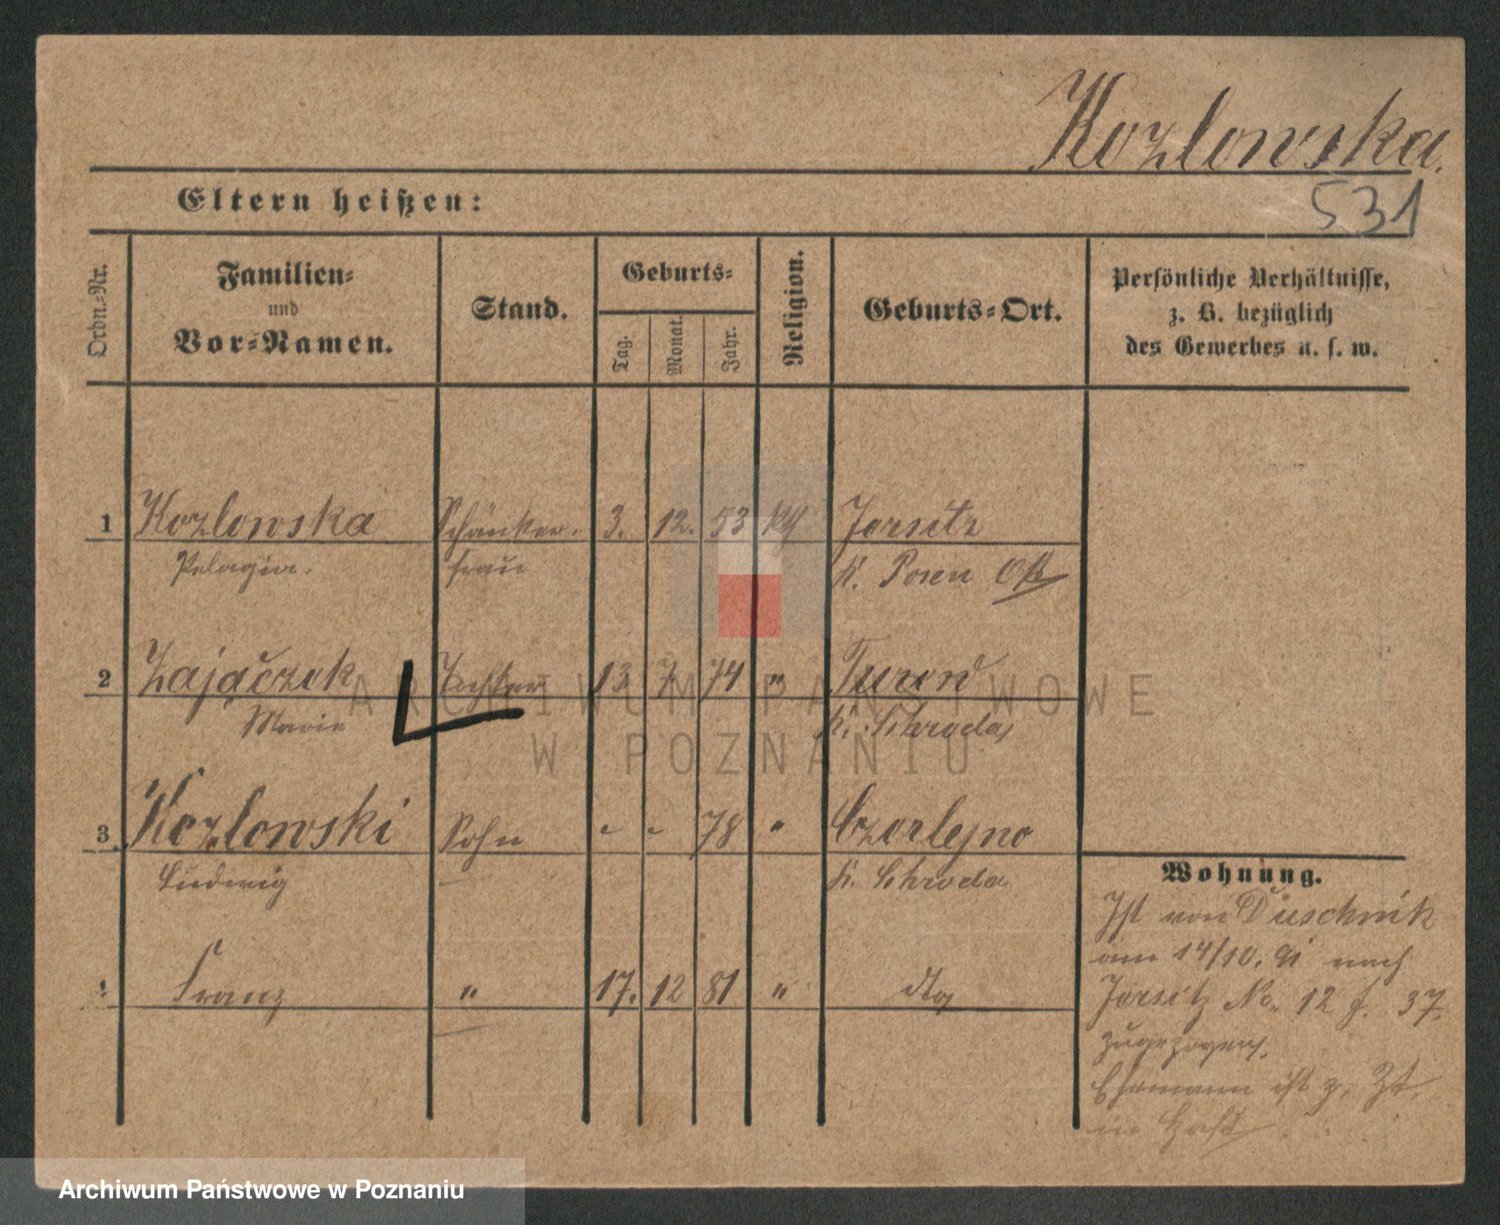 Kozlowska.
531
Eltern heißen:
Ordn.-Nr.
Familien-
und
Vor-Namen.
Stand.
Geburts-
Tag.
Monat.
Jahr.
Religion.
Geburts-Ort.
Persönliche Verhältnisse,
z. B. bezüglich
des Gewerbes u. s. w.
1 Kozlowska Schänker- 3. 12. 53 kth Jersitz
Pelagia. frau K. Posen Ost
2 Zajączek Tochter 13 7 74 " Turowo
Marie K. Schroda
3 Kozlowski Sohn - - 78 " Czarlejno
Ludwig K. Schroda
4 Franz " 17. 12 81 " dto
Wohnung.
Ist von Duschnik
am 14/10. 91 nach
Jersitz No. 12 f. 37.
zugezogen.
Ehemann ist z. Zt.
in Haft
ARCHIWUM PAŃSTWOWE
W POZNANIU
Archiwum Państwowe w Poznaniu